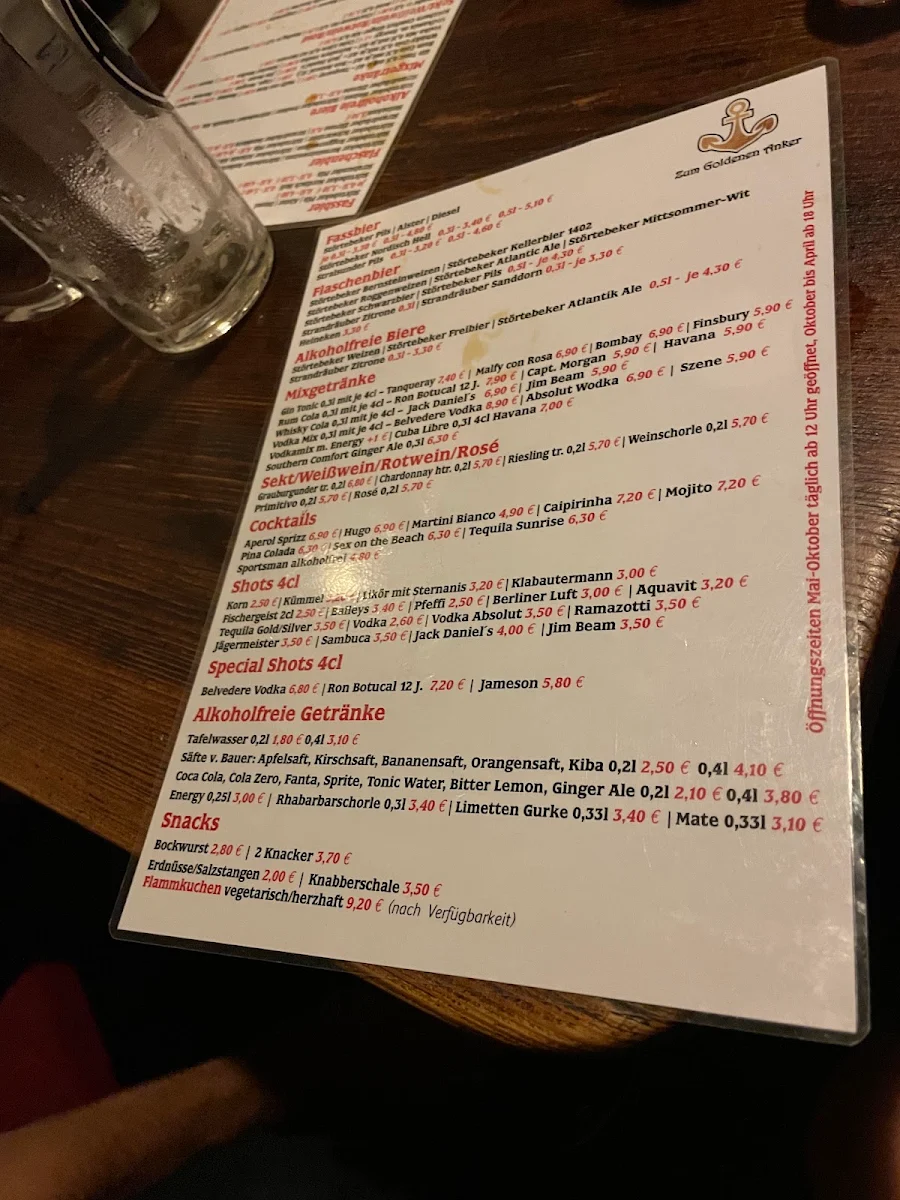 Zum Goldenen Anker
Fassbier
Störtebeker Pils | Alster | Diesel
je 0,3l - 3,30 € 0,5l - 4,80 €
Störtebeker Nordisch Hell 0,3l - 3,40 € 0,5l - 5,10 €
Stralsunder Pils 0,3l - 3,20 € 0,5l - 4,60 €
Flaschenbier
Störtebeker Bernsteinweizen | Störtebeker Kellerbier 1402
Störtebeker Roggenweizen | Störtebeker Atlantic Ale | Störtebeker Mittsommer-Wit
Störtebeker Schwarzbier | Störtebeker Pils 0,5l - je 4,30 €
Strandräuber Zitrone 0,3l | Strandräuber Sanddorn 0,3l - je 3,30 €
Heineken 3,30 €
Alkoholfreie Biere
Störtebeker Weizen | Störtebeker Freibier | Störtebeker Atlantik Ale 0,5l - je 4,30 €
Strandräuber Zitrone 0,3l - 3,30 €
Mixgetränke
Gin Tonic 0,3l mit je 4cl – Tanqueray 7,40 € | Malfy con Rosa 6,90 € | Bombay 6,90 € | Finsbury 5,90 €
Rum Cola 0,3l mit je 4cl – Ron Botucal 12 J. 7,90 € | Capt. Morgan 5,90 € | Havana 5,90 €
Whisky Cola 0,3l mit je 4cl – Jack Daniel´s 6,90 € | Jim Beam 5,90 €
Vodka Mix 0,3l mit je 4cl – Belvedere Vodka 8,90 € | Absolut Wodka 6,90 € | Szene 5,90 €
Vodkamix m. Energy +1 € | Cuba Libre 0,3l 4cl Havana 7,00 €
Southern Comfort Ginger Ale 0,3l 6,30 €
Sekt/Weißwein/Rotwein/Rosé
Grauburgunder tr. 0,2l 6,80 € | Chardonnay htr. 0,2l 5,70 € | Riesling tr. 0,2l 5,70 € | Weinschorle 0,2l 5,70 €
Primitivo 0,2l 5,70 € | Rosé 0,2l 5,70 €
Cocktails
Aperol Sprizz 6,90 € | Hugo 6,90 € | Martini Bianco 4,90 € | Caipirinha 7,20 € | Mojito 7,20 €
Pina Colada 6,30 € | Sex on the Beach 6,30 € | Tequila Sunrise 6,30 €
Sportsman alkoholfrei 4,80 €
Shots 4cl
Korn 2,50 € | Kümmel € | Likör mit Sternanis 3,20 € | Klabautermann 3,00 €
Fischergeist 2cl 2,50 € | Baileys 3,40 € | Pfeffi 2,50 € | Berliner Luft 3,00 € | Aquavit 3,20 €
Tequila Gold/Silver 3,50 € | Vodka 2,60 € | Vodka Absolut 3,50 € | Ramazotti 3,50 €
Jägermeister 3,50 € | Sambuca 3,50 € | Jack Daniel´s 4,00 € | Jim Beam 3,50 €
Special Shots 4cl
Belvedere Vodka 6,80 € | Ron Botucal 12 J. 7,20 € | Jameson 5,80 €
Alkoholfreie Getränke
Tafelwasser 0,2l 1,80 € 0,4l 3,10 €
Säfte v. Bauer: Apfelsaft, Kirschsaft, Bananensaft, Orangensaft, Kiba 0,2l 2,50 € 0,4l 4,10 €
Coca Cola, Cola Zero, Fanta, Sprite, Tonic Water, Bitter Lemon, Ginger Ale 0,2l 2,10 € 0,4l 3,80 €
Energy 0,25l 3,00 € | Rhabarbarschorle 0,3l 3,40 € | Limetten Gurke 0,33l 3,40 € | Mate 0,33l 3,10 €
Snacks
Bockwurst 2,80 € | 2 Knacker 3,70 €
Erdnüsse/Salzstangen 2,00 € | Knabberschale 3,50 €
Flammkuchen vegetarisch/herzhaft 9,20 € (nach Verfügbarkeit)
Öffnungszeiten Mai-Oktober täglich ab 12 Uhr geöffnet, Oktober bis April ab 18 Uhr
Mixgetränke
Alkoholfreie Biere
Flaschenbier
Fassbier